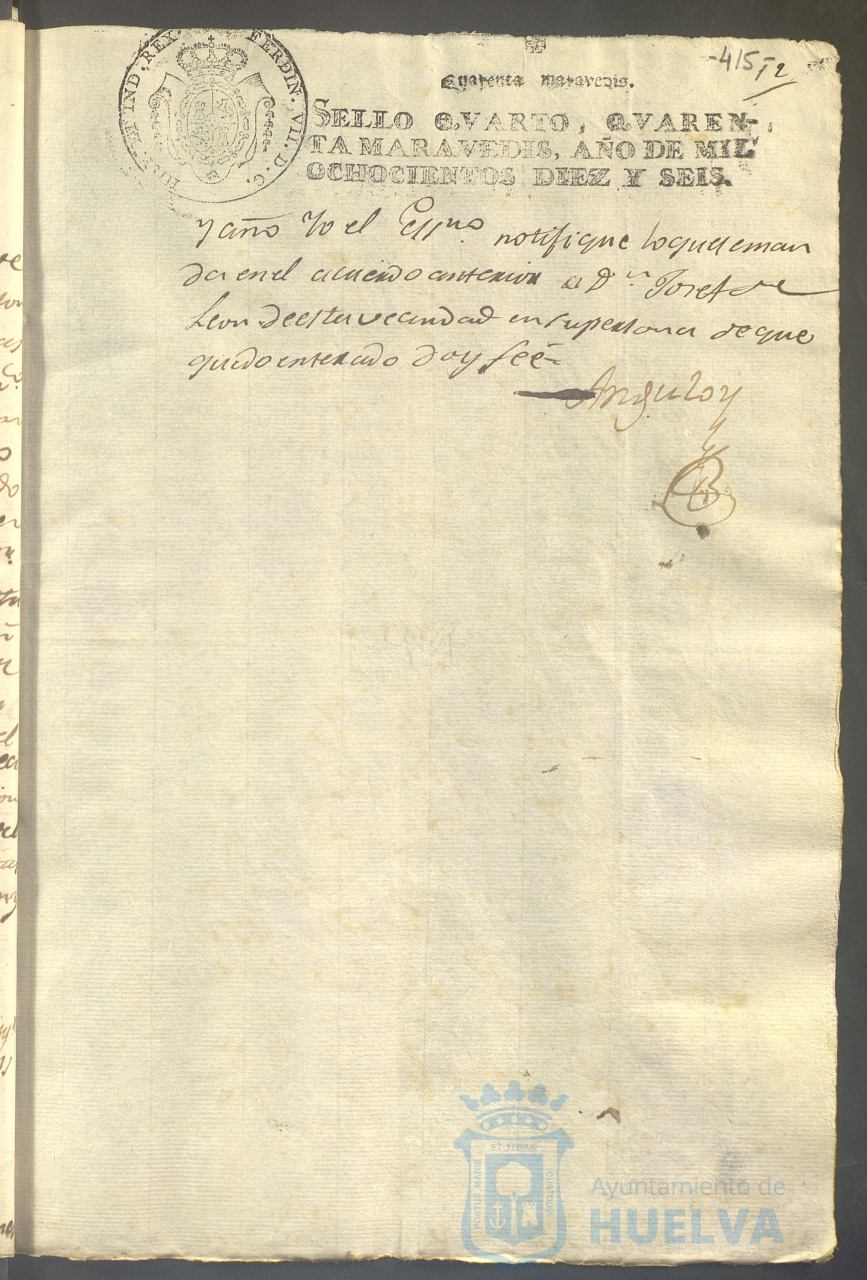 -415-
12
HISP. ET IND. REX. FERDIN. VII. D. G.
Quarenta maravedis.
SELLO QVARTO, QVAREN-
TA MARAVEDIS, AÑO DE MIL
OCHOCIENTOS DIEZ Y SEIS.
y año Yo el Essno notifique lo que se man
da en el acuerdo anterior a Dn Josef de
Leon de esta vecindad en su persona de que
quedo enterado doy feé-
Anguloy
PORTUS MARIS ET TERRE CUSTODIA
Ayuntamiento de
HUELVA